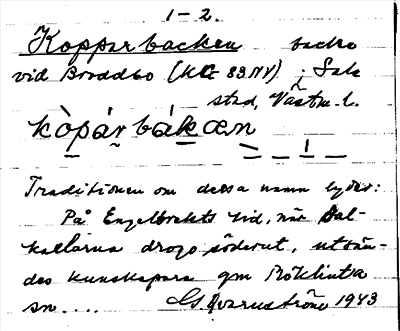 1-2.
Kopparbacken backe
vid Broddbo (KG 89NV) ; Sala
stad, Västm. l.
kòpárbákæn
Traditionen om dessa namn lyder:
På Engelbrekts tid, när Dal-
karlarna drogo söderut, utsän-
des kunskapare gm Möklinta
sn....  1943